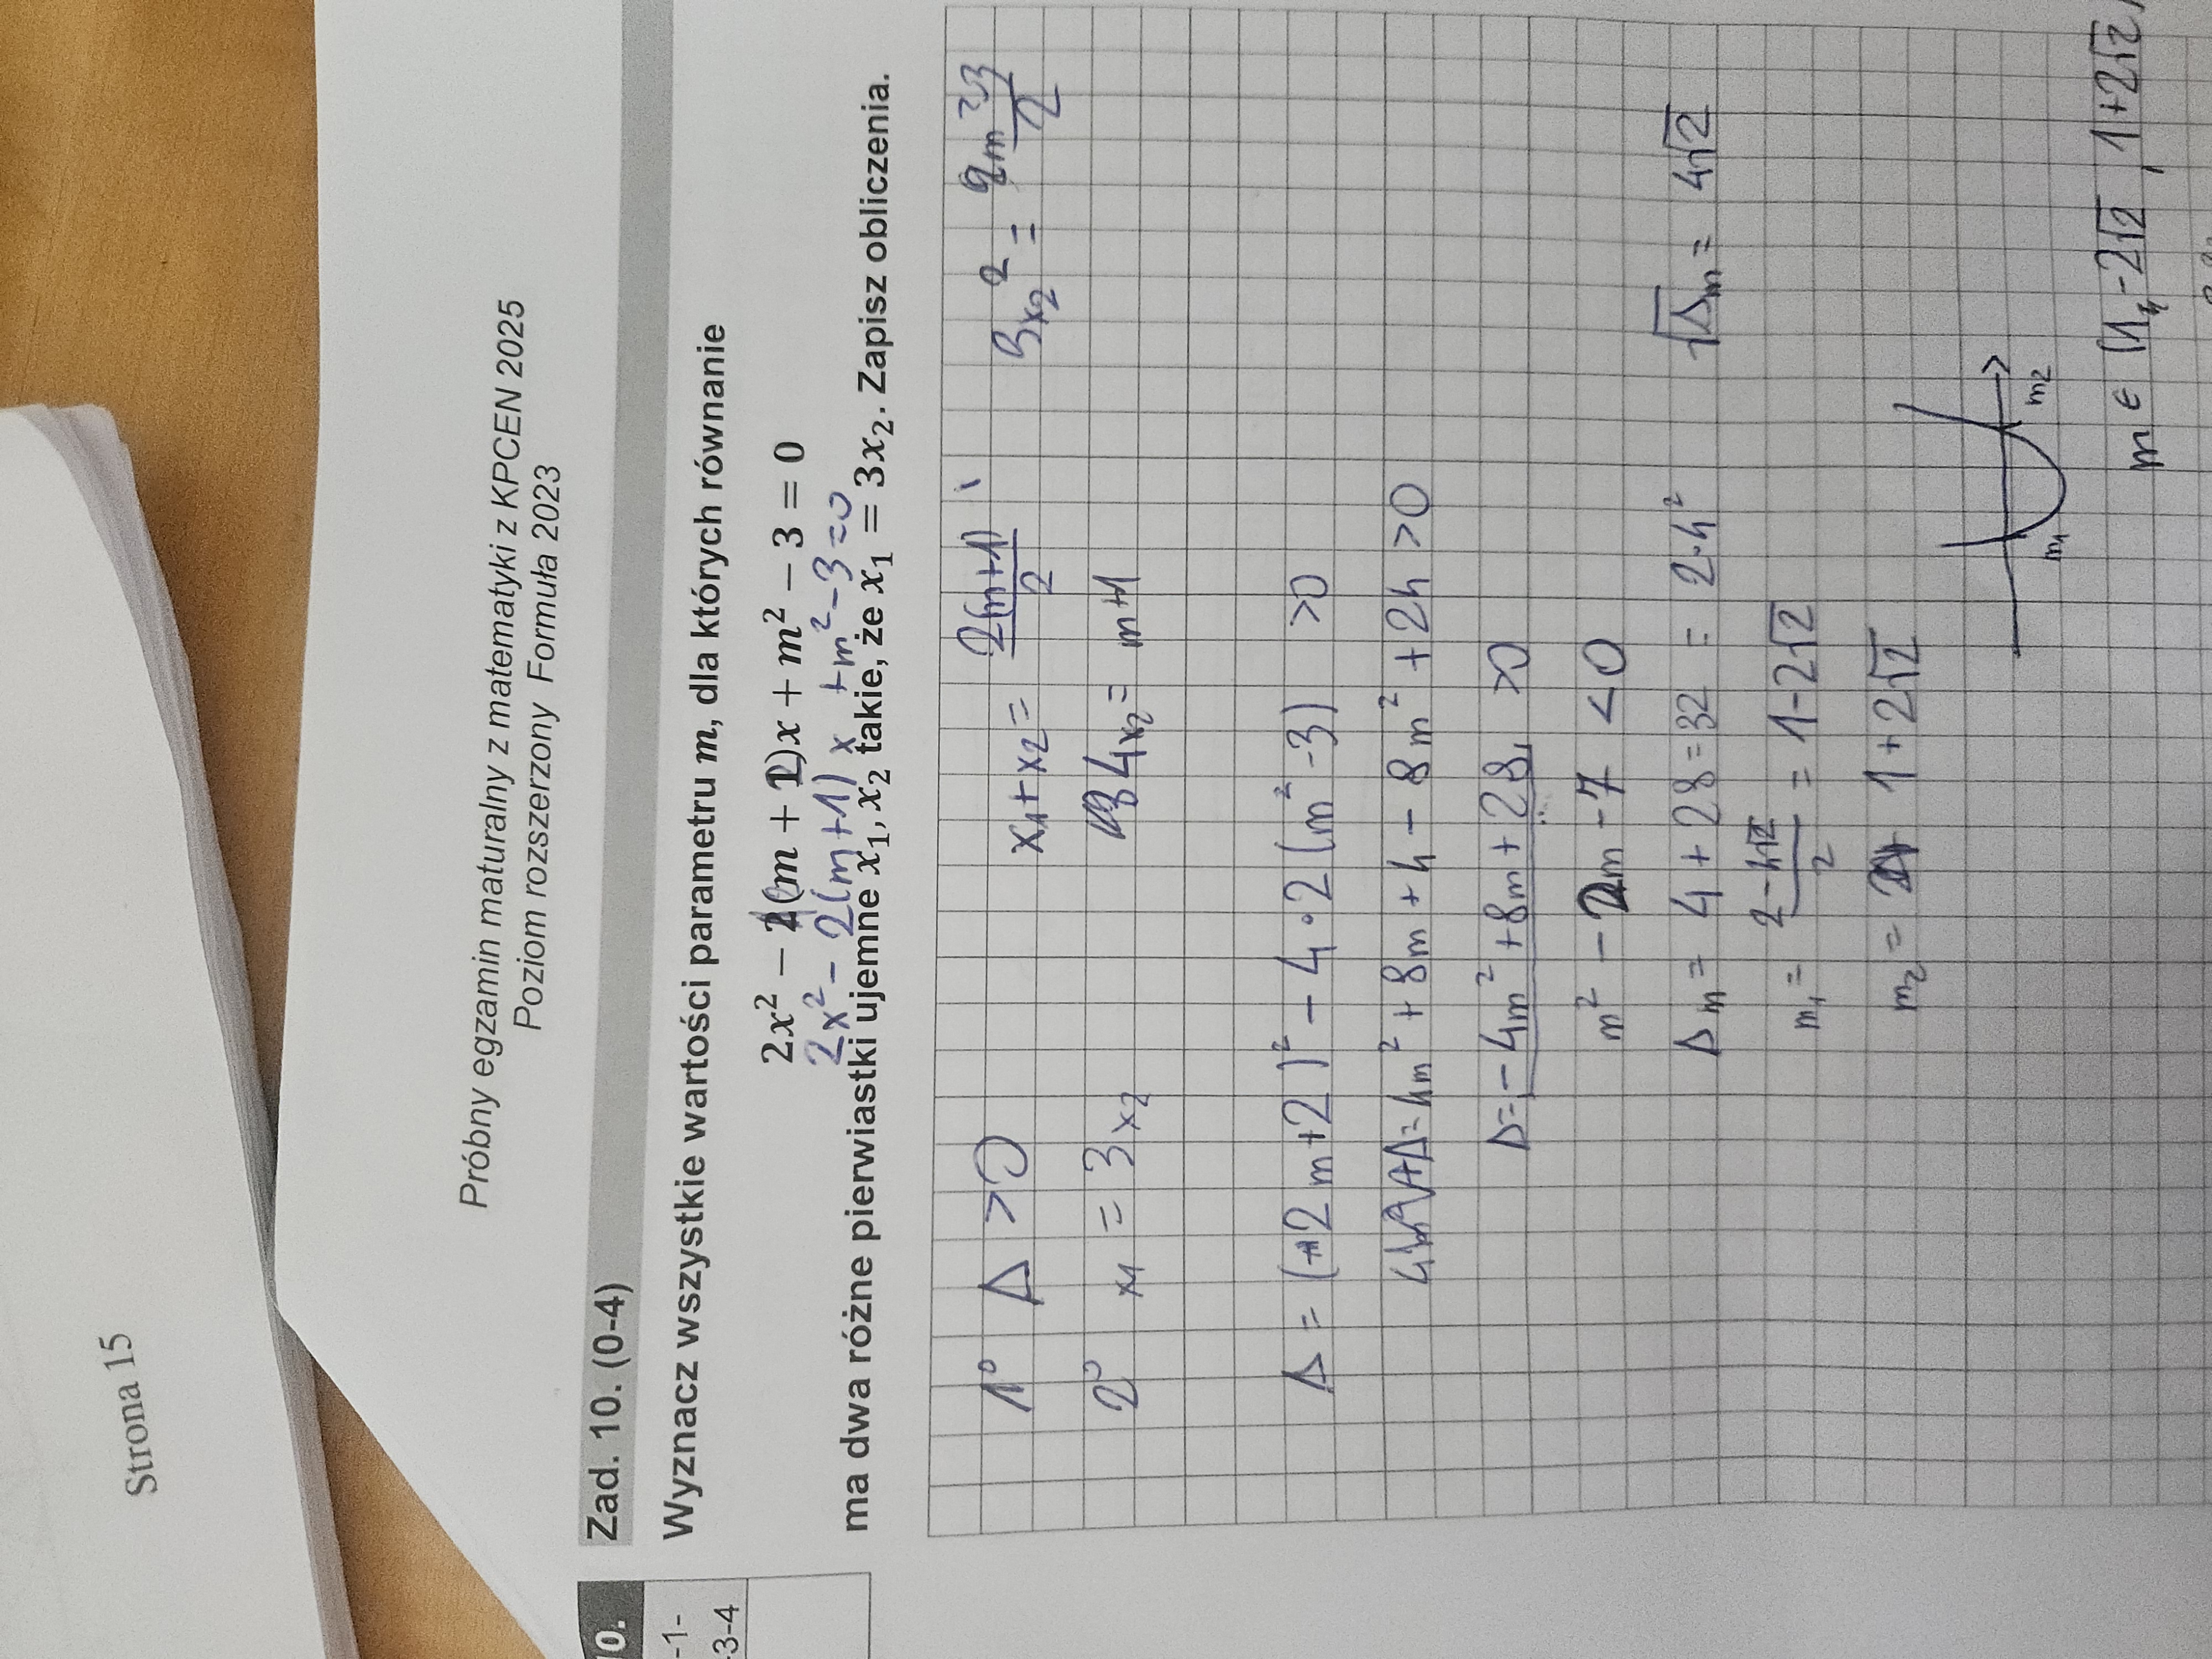 Strona 15
Próbny egzamin maturalny z matematyki z KPCEN 2025
Poziom rozszerzony Formuła 2023
0.
Zad. 10. (0-4)
-1-
-3-4
Wyznacz wszystkie wartości parametru m, dla których równanie
2x² − 2(m + 1)x + m² − 3 = 0
2x² − 2(m+1)x + m² − 3 = 0
ma dwa różne pierwiastki ujemne x₁, x₂ takie, że x₁ = 3x₂. Zapisz obliczenia.
1° Δ > 0
x₁+x₂ = 2(m+1)/2
3x₂² =
2° x₁ = 3x₂
4x₂ = m+1
Δ = (+2m+2)² − 4·2(m²−3) >0
Δ = 4m² + 8m + 4 − 8m² + 24 >0
Δ = −4m² + 8m + 28 >0
m² − 2m − 7 < 0
Δm = 4 + 28 = 32 = 2·4²
√Δm = 4√2
m₁ = (2−4√2)/2 = 1−2√2
m₂ = 1+2√2
m₁ m₂
m ∈ (1−2√2, 1+2√2)